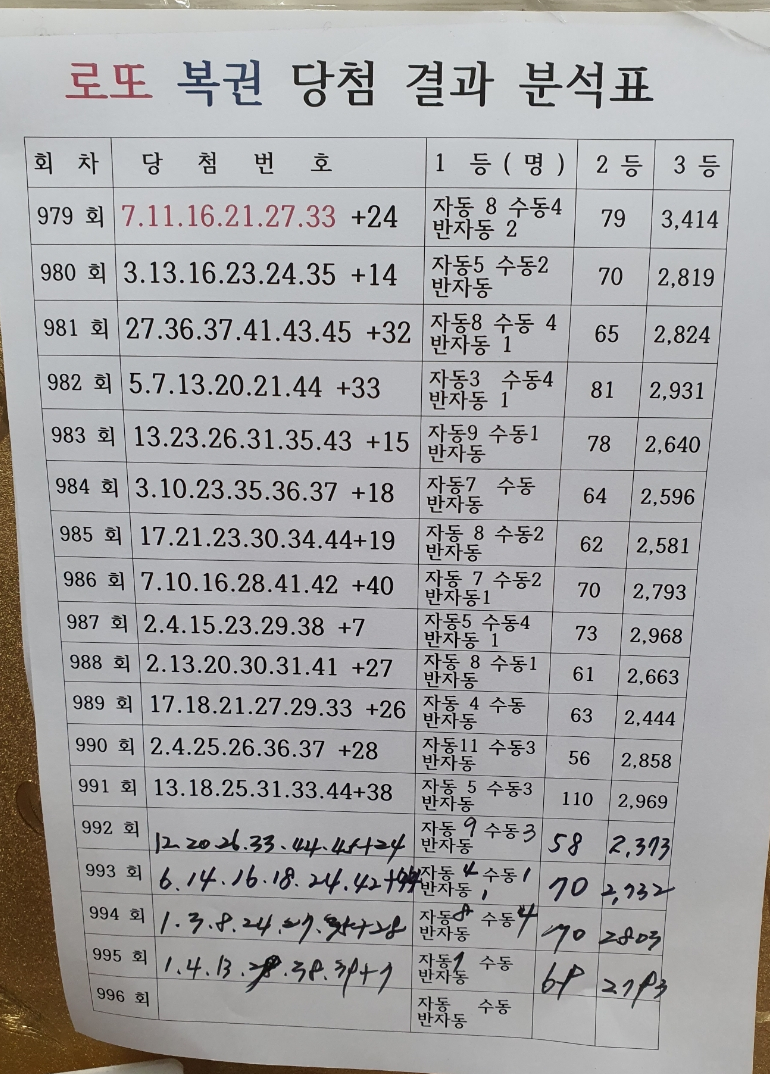 로또 복권 당첨 결과 분석표
회 차 당 첨 번 호 1 등(명) 2등 3등
979 회 7.11.16.21.27.33 +24 자동 8 수동4 79 3,414
반자동 2
980 회 3.13.16.23.24.35 +14 자동5 수동2 70 2,819
반자동
981 회 27.36.37.41.43.45 +32 자동8 수동 4 65 2,824
반자동 1
982 회 5.7.13.20.21.44 +33 자동3 수동4 81 2,931
반자동 1
983 회 13.23.26.31.35.43 +15 자동9 수동1 78 2,640
반자동
984 회 3.10.23.35.36.37 +18 자동7 수동 64 2,596
반자동
985 회 17.21.23.30.34.44+19 자동 8 수동2 62 2,581
반자동
986 회 7.10.16.28.41.42 +40 자동 7 수동2 70 2,793
반자동1
987 회 2.4.15.23.29.38 +7 자동5 수동4 73 2,968
반자동 1
988 회 2.13.20.30.31.41 +27 자동 8 수동1 61 2,663
반자동
989 회 17.18.21.27.29.33 +26 자동 4 수동 63 2,444
반자동
990 회 2.4.25.26.36.37 +28 자동11 수동3 56 2,858
반자동
991 회 13.18.25.31.33.44+38 자동 5 수동3 110 2,969
반자동
992 회 12.20.26.33.44.45+24 자동 9 수동3 58 2,373
반자동
993 회 6.14.16.18.24.42+44 자동 4 수동1 70 2,732
반자동 1
994 회 1.3.8.24.27.35+28 자동8 수동4 70 2803
반자동
995 회 1.4.13. .38.39+7 자동7 수동 69 2793
반자동
996 회 자동 수동
반자동